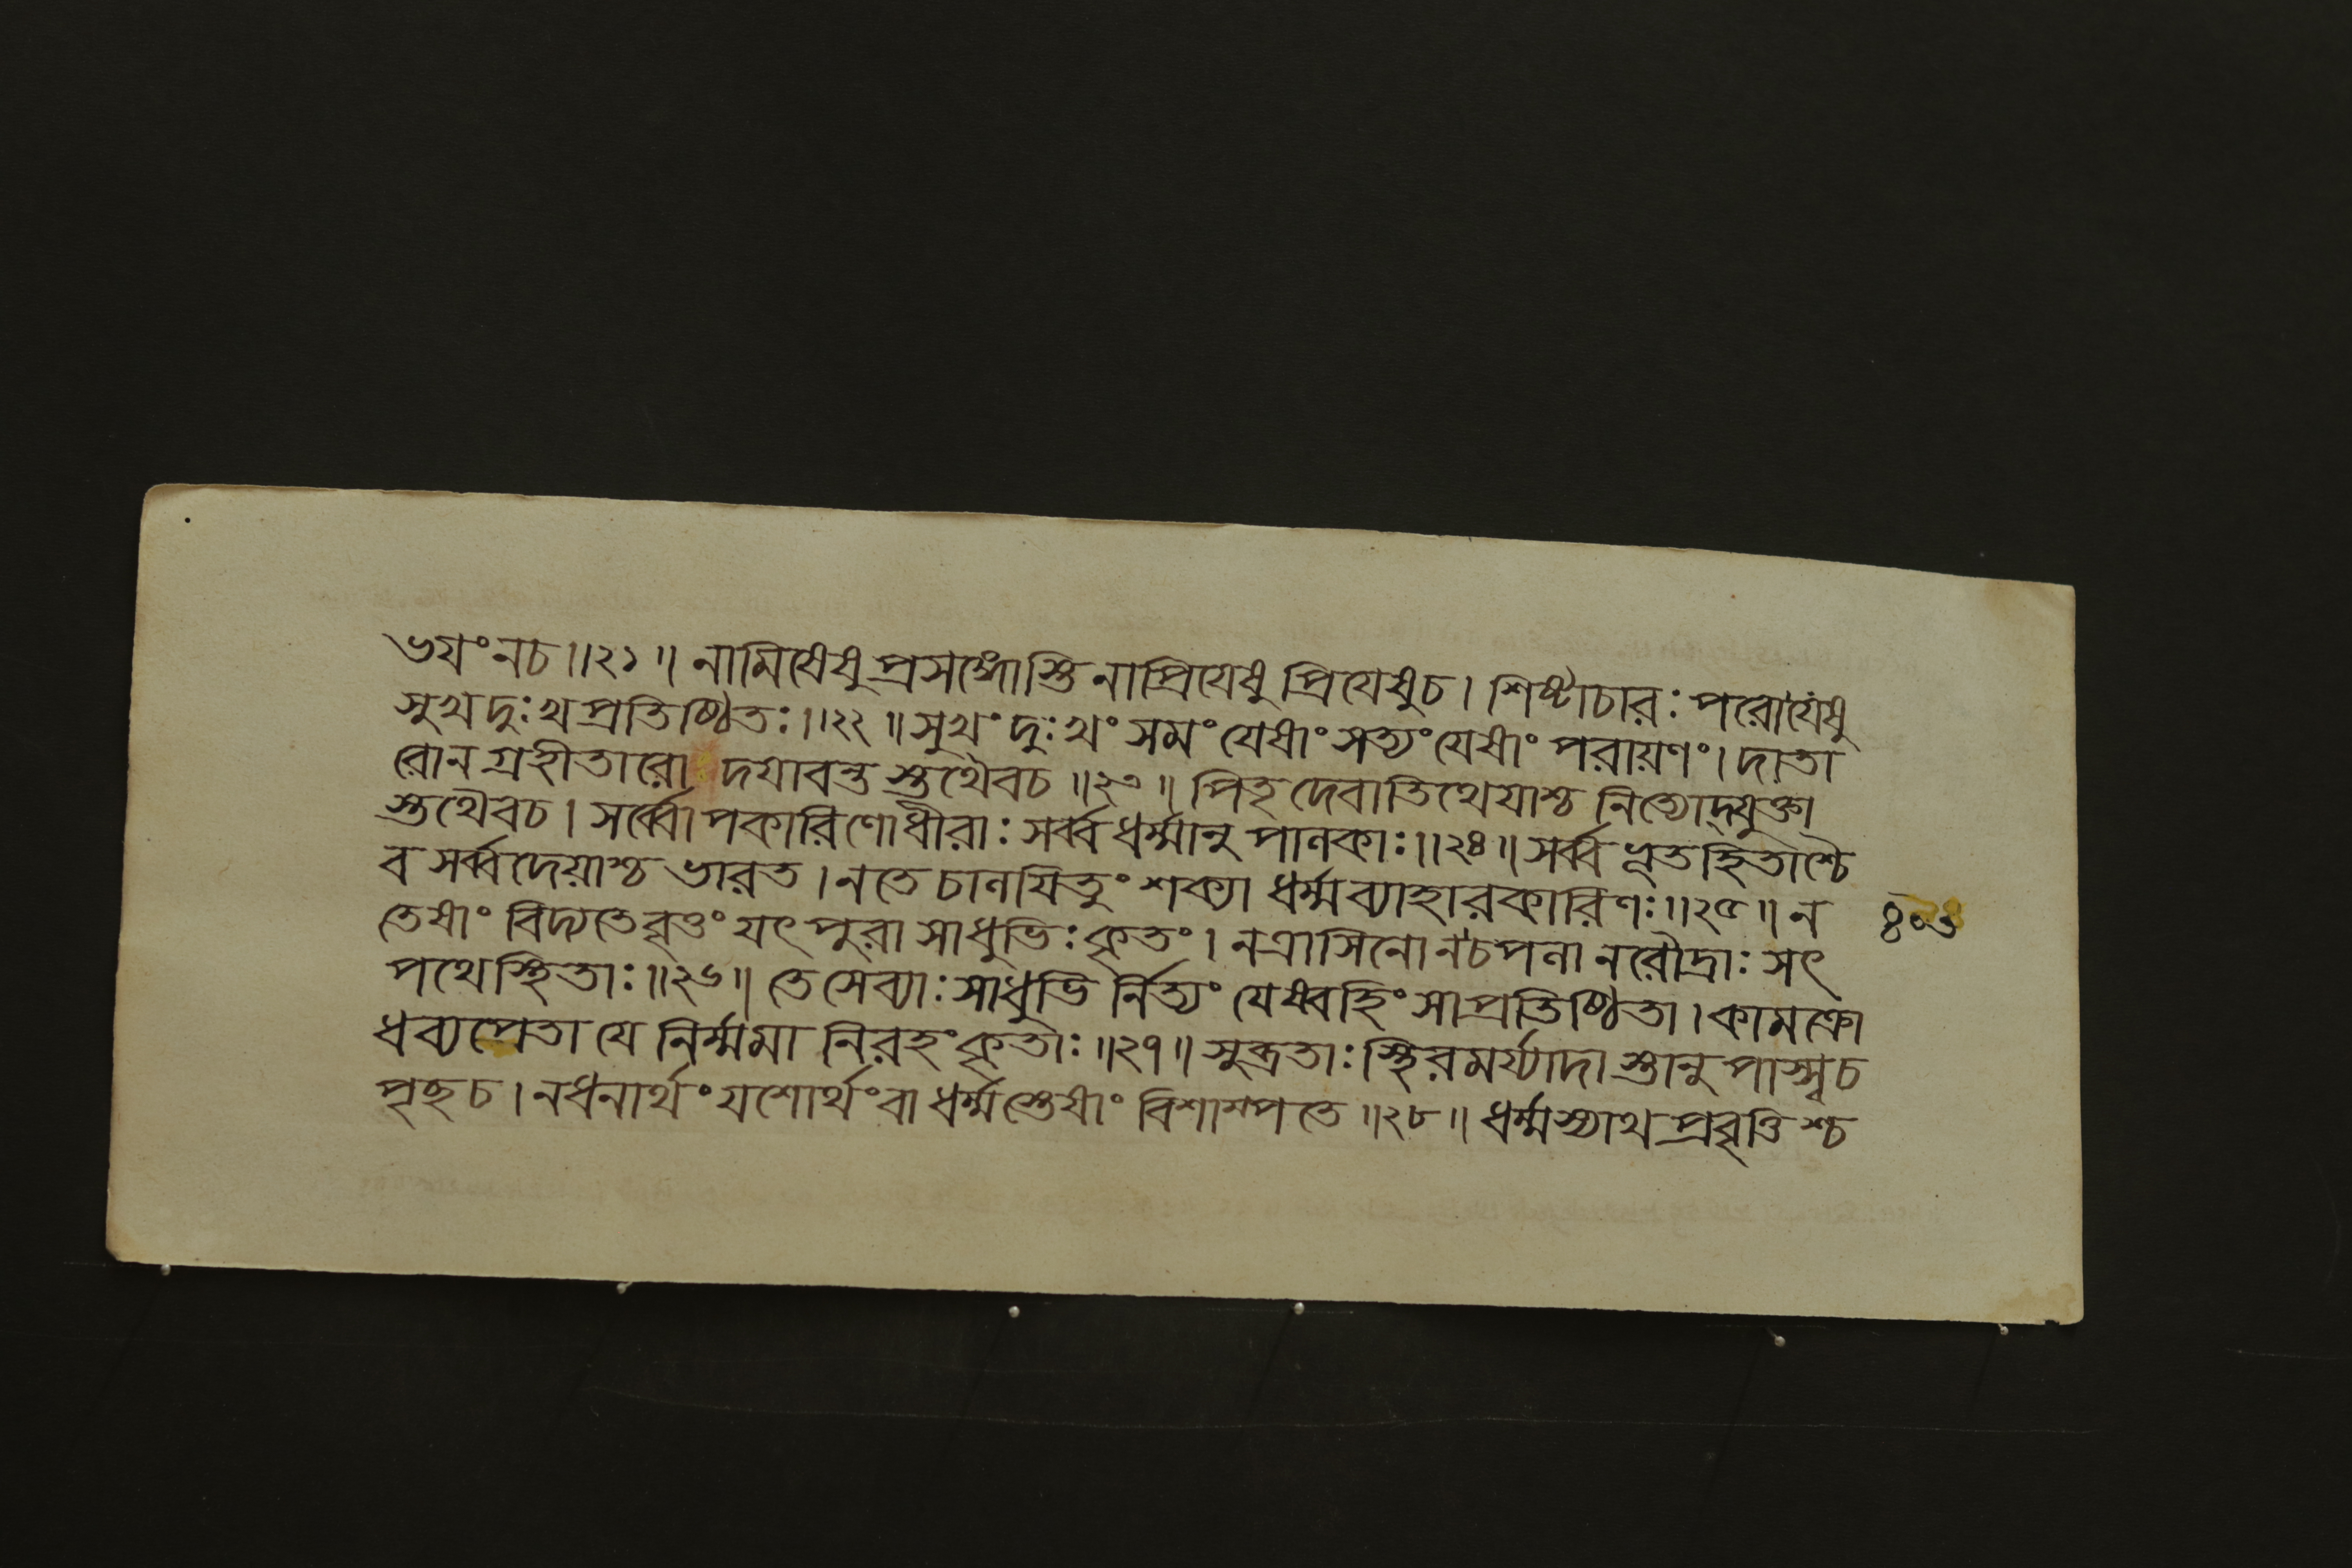 ভয়ং নচ॥২১॥ নামিষেষু প্রসঙ্গোস্তি নাপ্রিয়েষু প্রিয়েষুচ। শিষ্টাচারঃ পরোযেষু
সুখদুঃখপ্রতিষ্ঠিতঃ॥২২॥ সুখংদুঃখং সমং যেষাং সত্যং যেষাং পরায়ণং। দাতা
রোন গ্রহীতারো দয়াবন্ত স্তথৈবচ॥২৩॥ পিতৃদেবাতিথেয়াশ্চ নিত্যোদ্যুক্তা
স্তথৈবচ। সর্ব্বোপকারিণোধীরাঃ সর্ব্বধর্ম্মানু পালকাঃ॥২৪॥ সর্ব্বভূতহিতাশ্চৈ
ব সর্ব্বদেয়াশ্চ ভারত। নতে চালয়িতুং শক্যা ধর্ম্মব্যাহারকারিণঃ॥২৫॥ ন
৪০৩
তেষাং বিদ্যতেবৃত্তং যৎ পুরা সাধুভিঃ কৃতং। নত্রাসিনো নচপলা নরৌদ্রাঃ সৎ
পথেস্থিতাঃ॥২৬॥ তেসেব্যাঃ সাধুভি র্নিত্যং যেষ্বহিংসাপ্রতিষ্ঠিতা। কামক্রো
ধব্যপেতা যে নির্ম্মমা নিরহংকৃতাঃ॥২৭॥ সুব্রতাঃ স্থিরমর্য্যাদা স্তানু পাস্স্বচ
পৃছচ। নধনার্থং যশোর্থংবা ধর্ম্মস্তেষাং বিশাম্পতে॥২৮॥ ধর্ম্মস্যাথ প্রবৃত্তিশ্চ